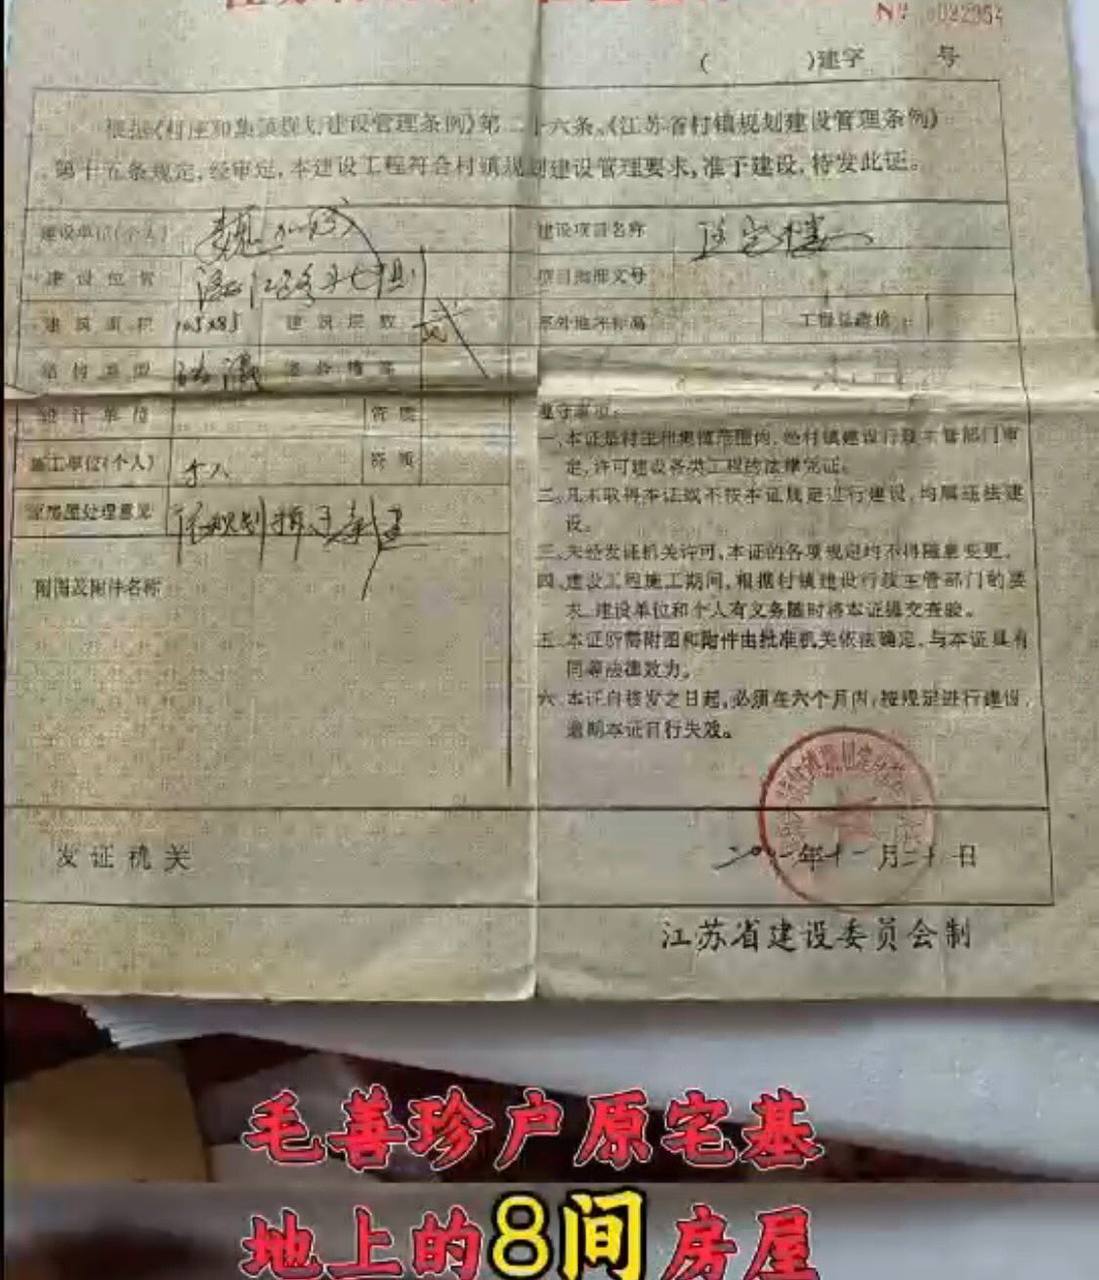 № 0032954
( )建字 号
根据《村庄和集镇规划建设管理条例》第二十六条、《江苏省村镇规划建设管理条例》
第十五条规定,经审定,本建设工程符合村镇规划建设管理要求,准予建设,特发此证。
建设单位(个人) 建设项目名称 住宅楼
建设位置 项目批准文号
建筑面积 建筑层数 弍 室外地坪标高 工程总造价
结构类型 砖混
设计单位 资质
施工单位(个人) 个人 资质
原房屋处理意见 依规划拆迁新建
附图及附件名称
遵守事项:
一、本证是村庄和集镇范围内,经村镇建设行政主管部门审
定,许可建设各类工程的法律凭证。
二、凡未取得本证或不按本证规定进行建设,均属违法建
设。
三、未经发证机关许可,本证的各项规定均不得随意变更。
四、建设工程施工期间,根据村镇建设行政主管部门的要
求,建设单位和个人有义务随时将本证提交查验。
五、本证所需附图和附件由批准机关依法确定,与本证具有
同等法律效力。
六、本证自核发之日起,必须在六个月内,按规定进行建设,
逾期本证自行失效。
发证机关
二〇〇一年十一月二十日
江苏省建设委员会制
毛善珍户原宅基
地上的8间房屋